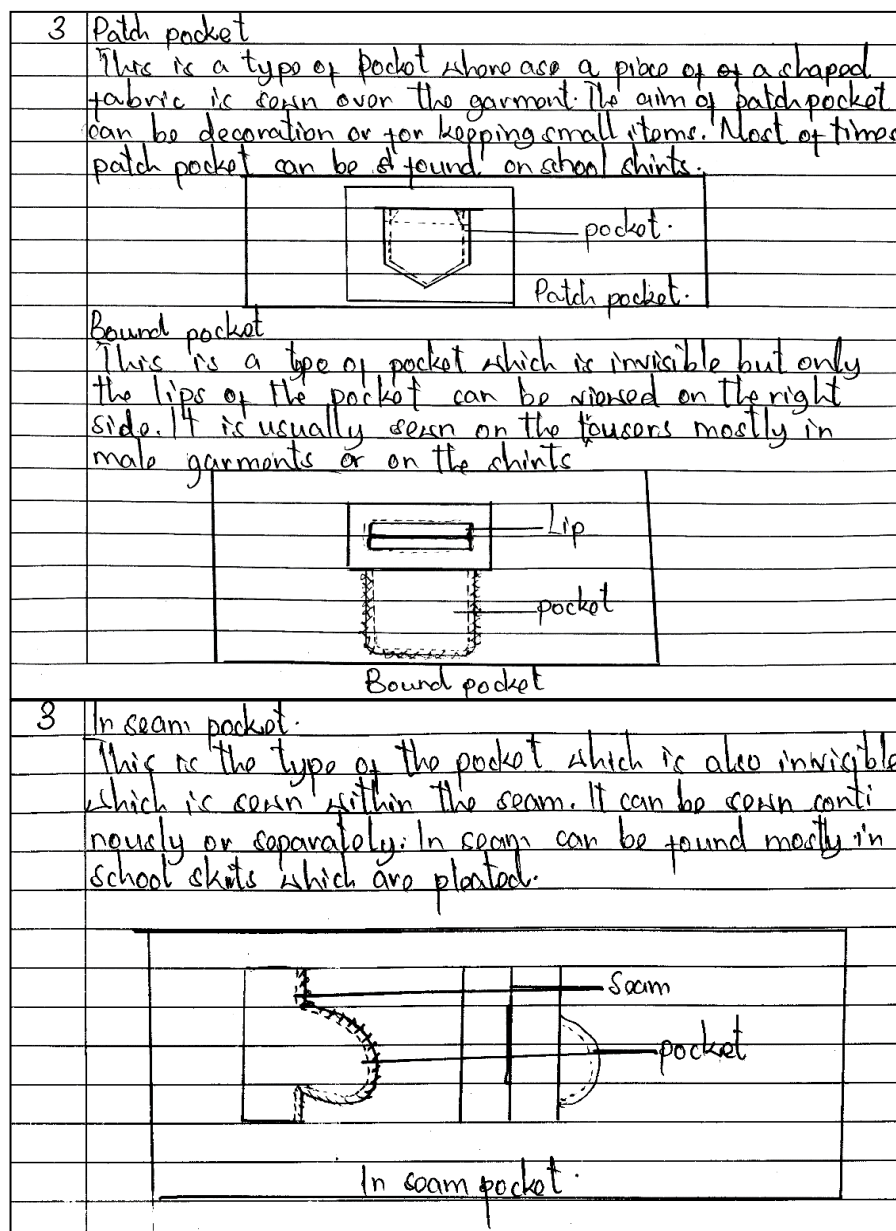 3 Patch pocket
This is a type of pocket where ase a piece of of a shaped
fabric is sewn over the garment. The aim of patch pocket
can be decoration or for keeping small items. Most of times
patch pocket can be found on school shirts.
pocket.
Patch pocket.
Bound pocket
This is a type of pocket which is invisible but only
the lips of the pocket can be viewed on the right
side. It is usually sewn on the tousers mostly in
male garments or on the shirts
Lip
pocket
Bound pocket
3 In seam pocket.
This is the type of the pocket which is also invisible
which is sewn within the seam. It can be sewn conti
nously or separately. In seam can be found mostly in
school skits which are pleated.
Seam
pocket
In seam pocket.